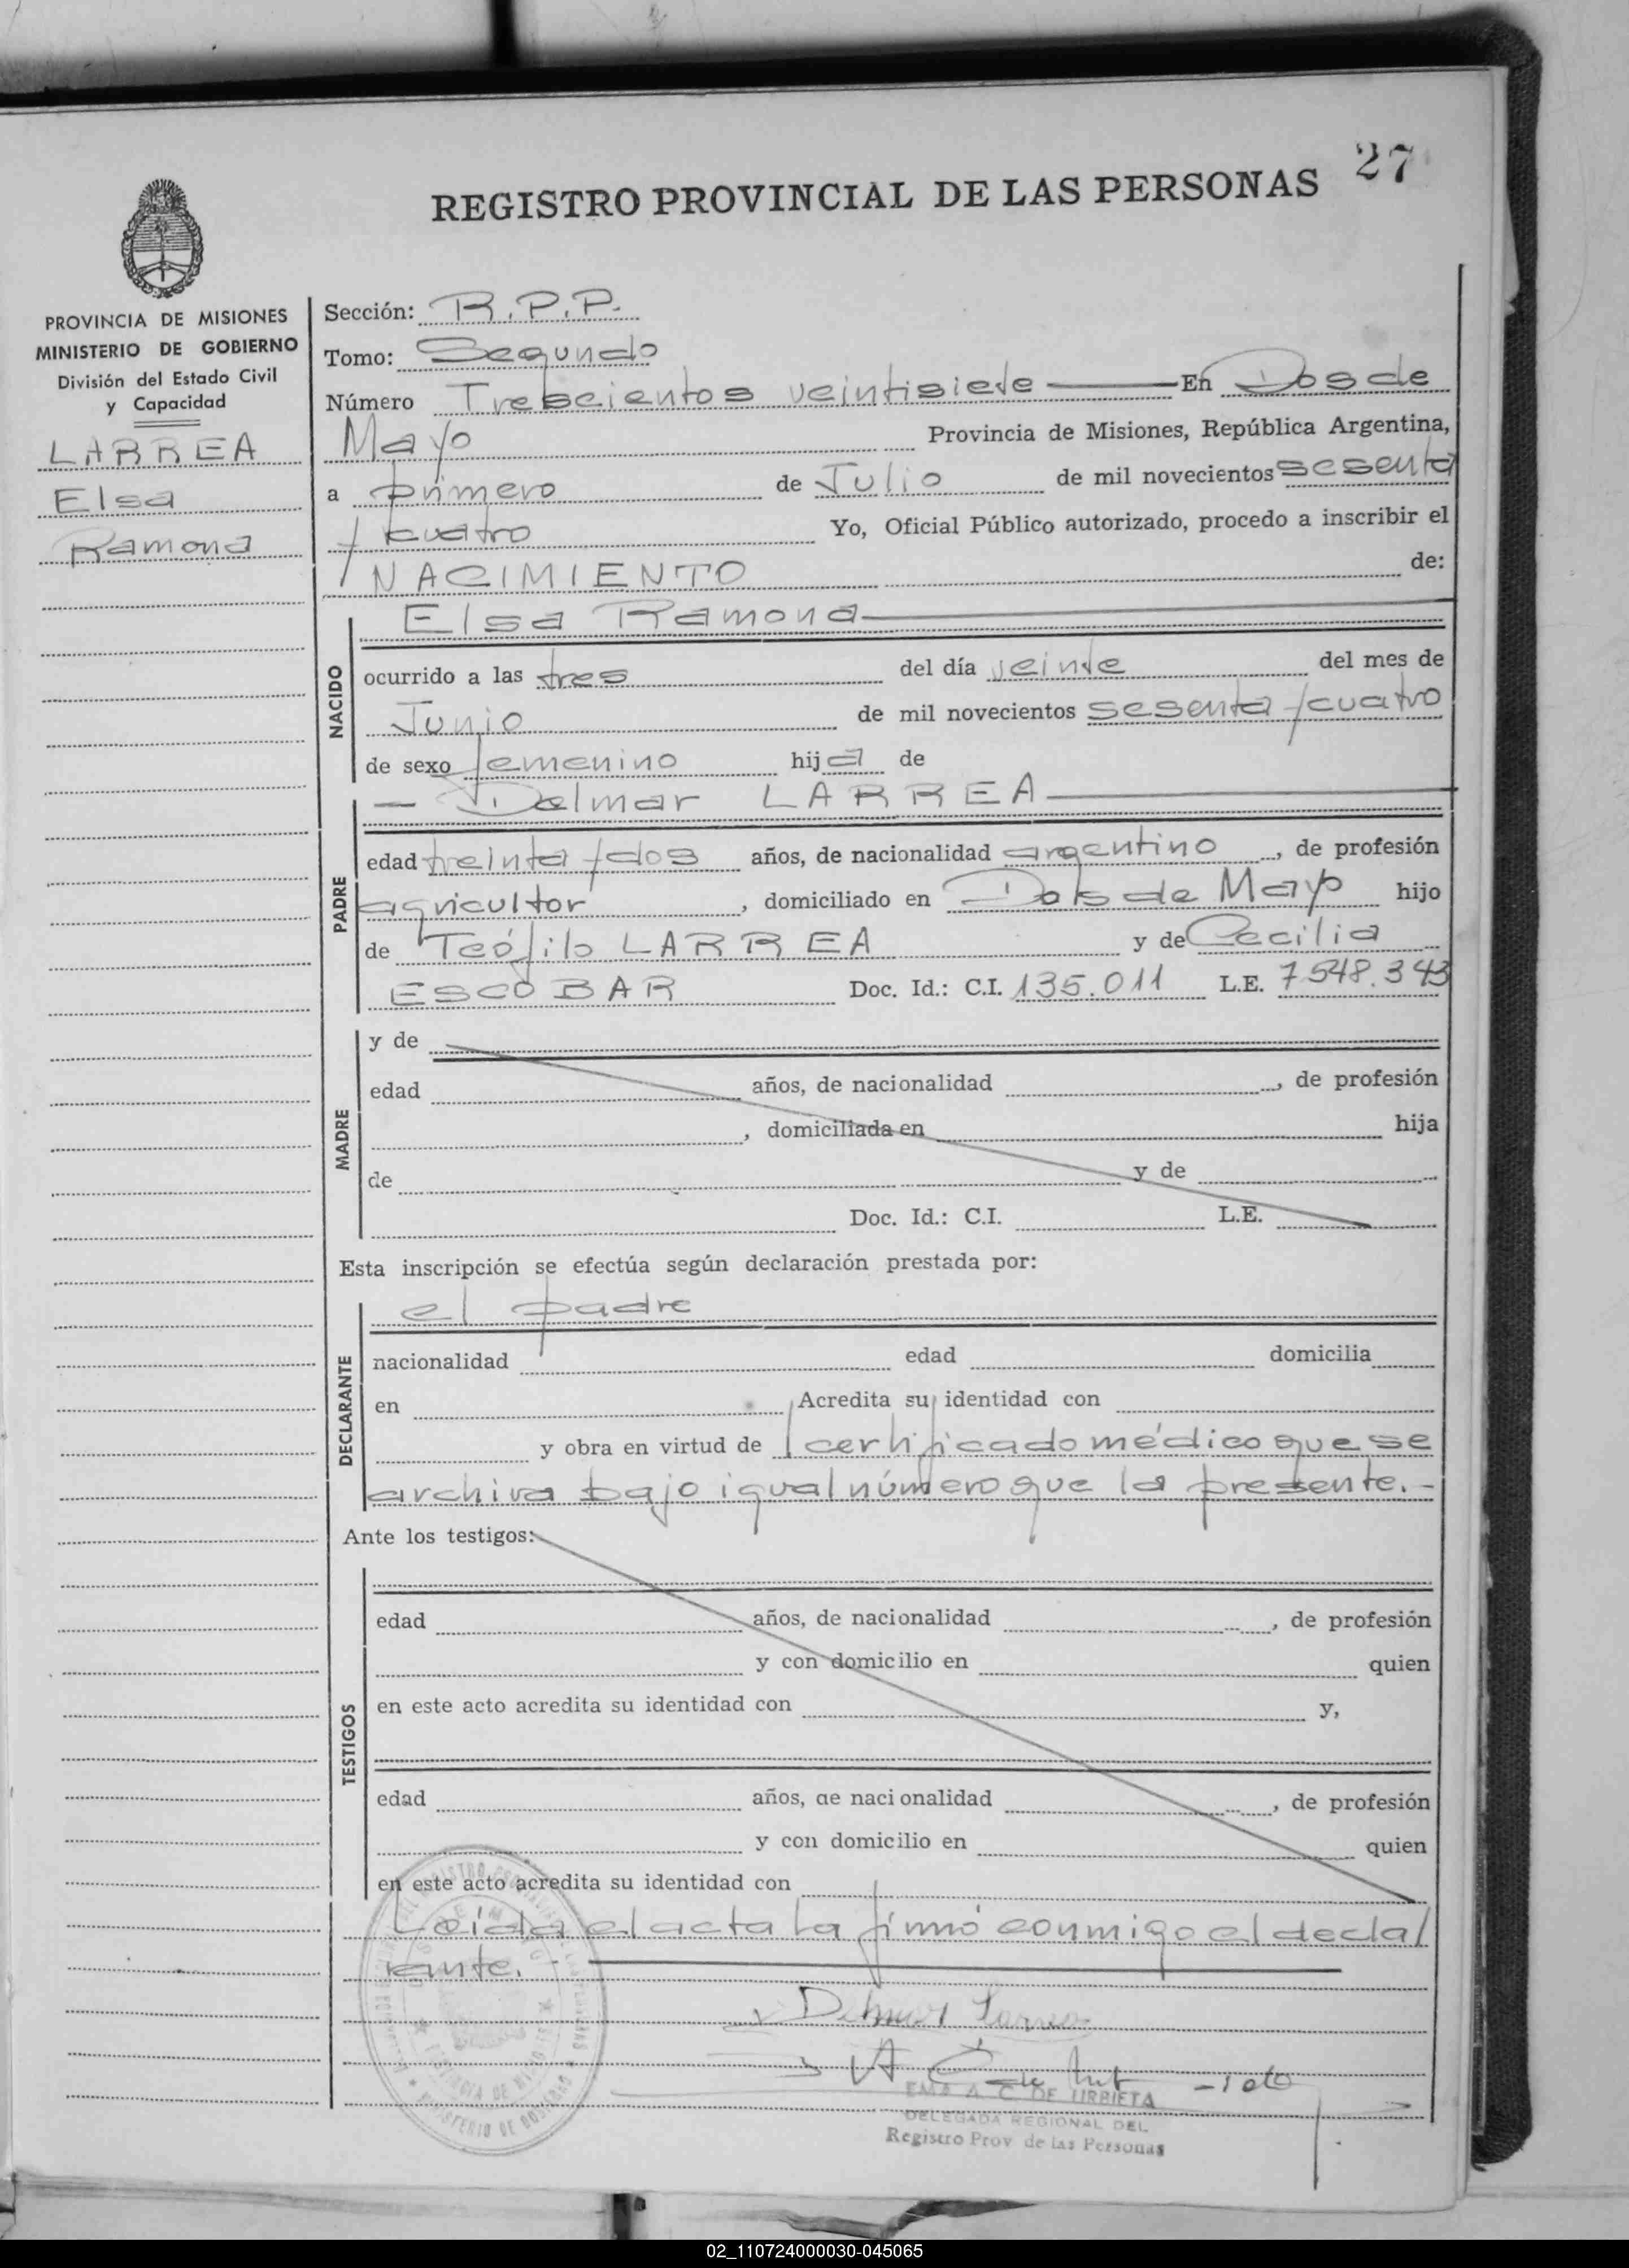 27
REGISTRO PROVINCIAL DE LAS PERSONAS
PROVINCIA DE MISIONES
MINISTERIO DE GOBIERNO
División del Estado Civil
y Capacidad
LARREA
Elsa
Ramona
Sección: R.P.P.
Tomo: Segundo
Número Trescientos veintisiete En Dos de
Mayo Provincia de Misiones, República Argentina,
a primero de Julio de mil novecientos sesenta
y cuatro Yo, Oficial Público autorizado, procedo a inscribir el
NACIMIENTO de:
Elsa Ramona
NACIDO
ocurrido a las tres del día veinte del mes de
Junio de mil novecientos sesenta y cuatro
de sexo femenino hija de
Delmar LARREA
PADRE
edad treinta y dos años, de nacionalidad argentino, de profesión
agricultor, domiciliado en Dos de Mayo hijo
de Teófilo LARREA y de Cecilia
ESCOBAR Doc. Id.: C.I. 135.011 L.E. 7548.343
MADRE
y de
edad años, de nacionalidad , de profesión
, domiciliada en hija
de y de
Doc. Id.: C.I. L.E.
Esta inscripción se efectúa según declaración prestada por:
el padre
DECLARANTE
nacionalidad edad domicilia
en Acredita su identidad con
y obra en virtud de certificado médico que se
archiva bajo igual número que la presente.-
Ante los testigos:
TESTIGOS
edad años, de nacionalidad , de profesión
y con domicilio en quien
en este acto acredita su identidad con y,
edad años, de nacionalidad , de profesión
y con domicilio en quien
en este acto acredita su identidad con
Leída el acta la firmó conmigo el decla/
rante.
Delmar Larrea
EMA A. C. DE URBIETA
DELEGADA REGIONAL DEL
Registro Prov de las Personas
02_110724000030-045065